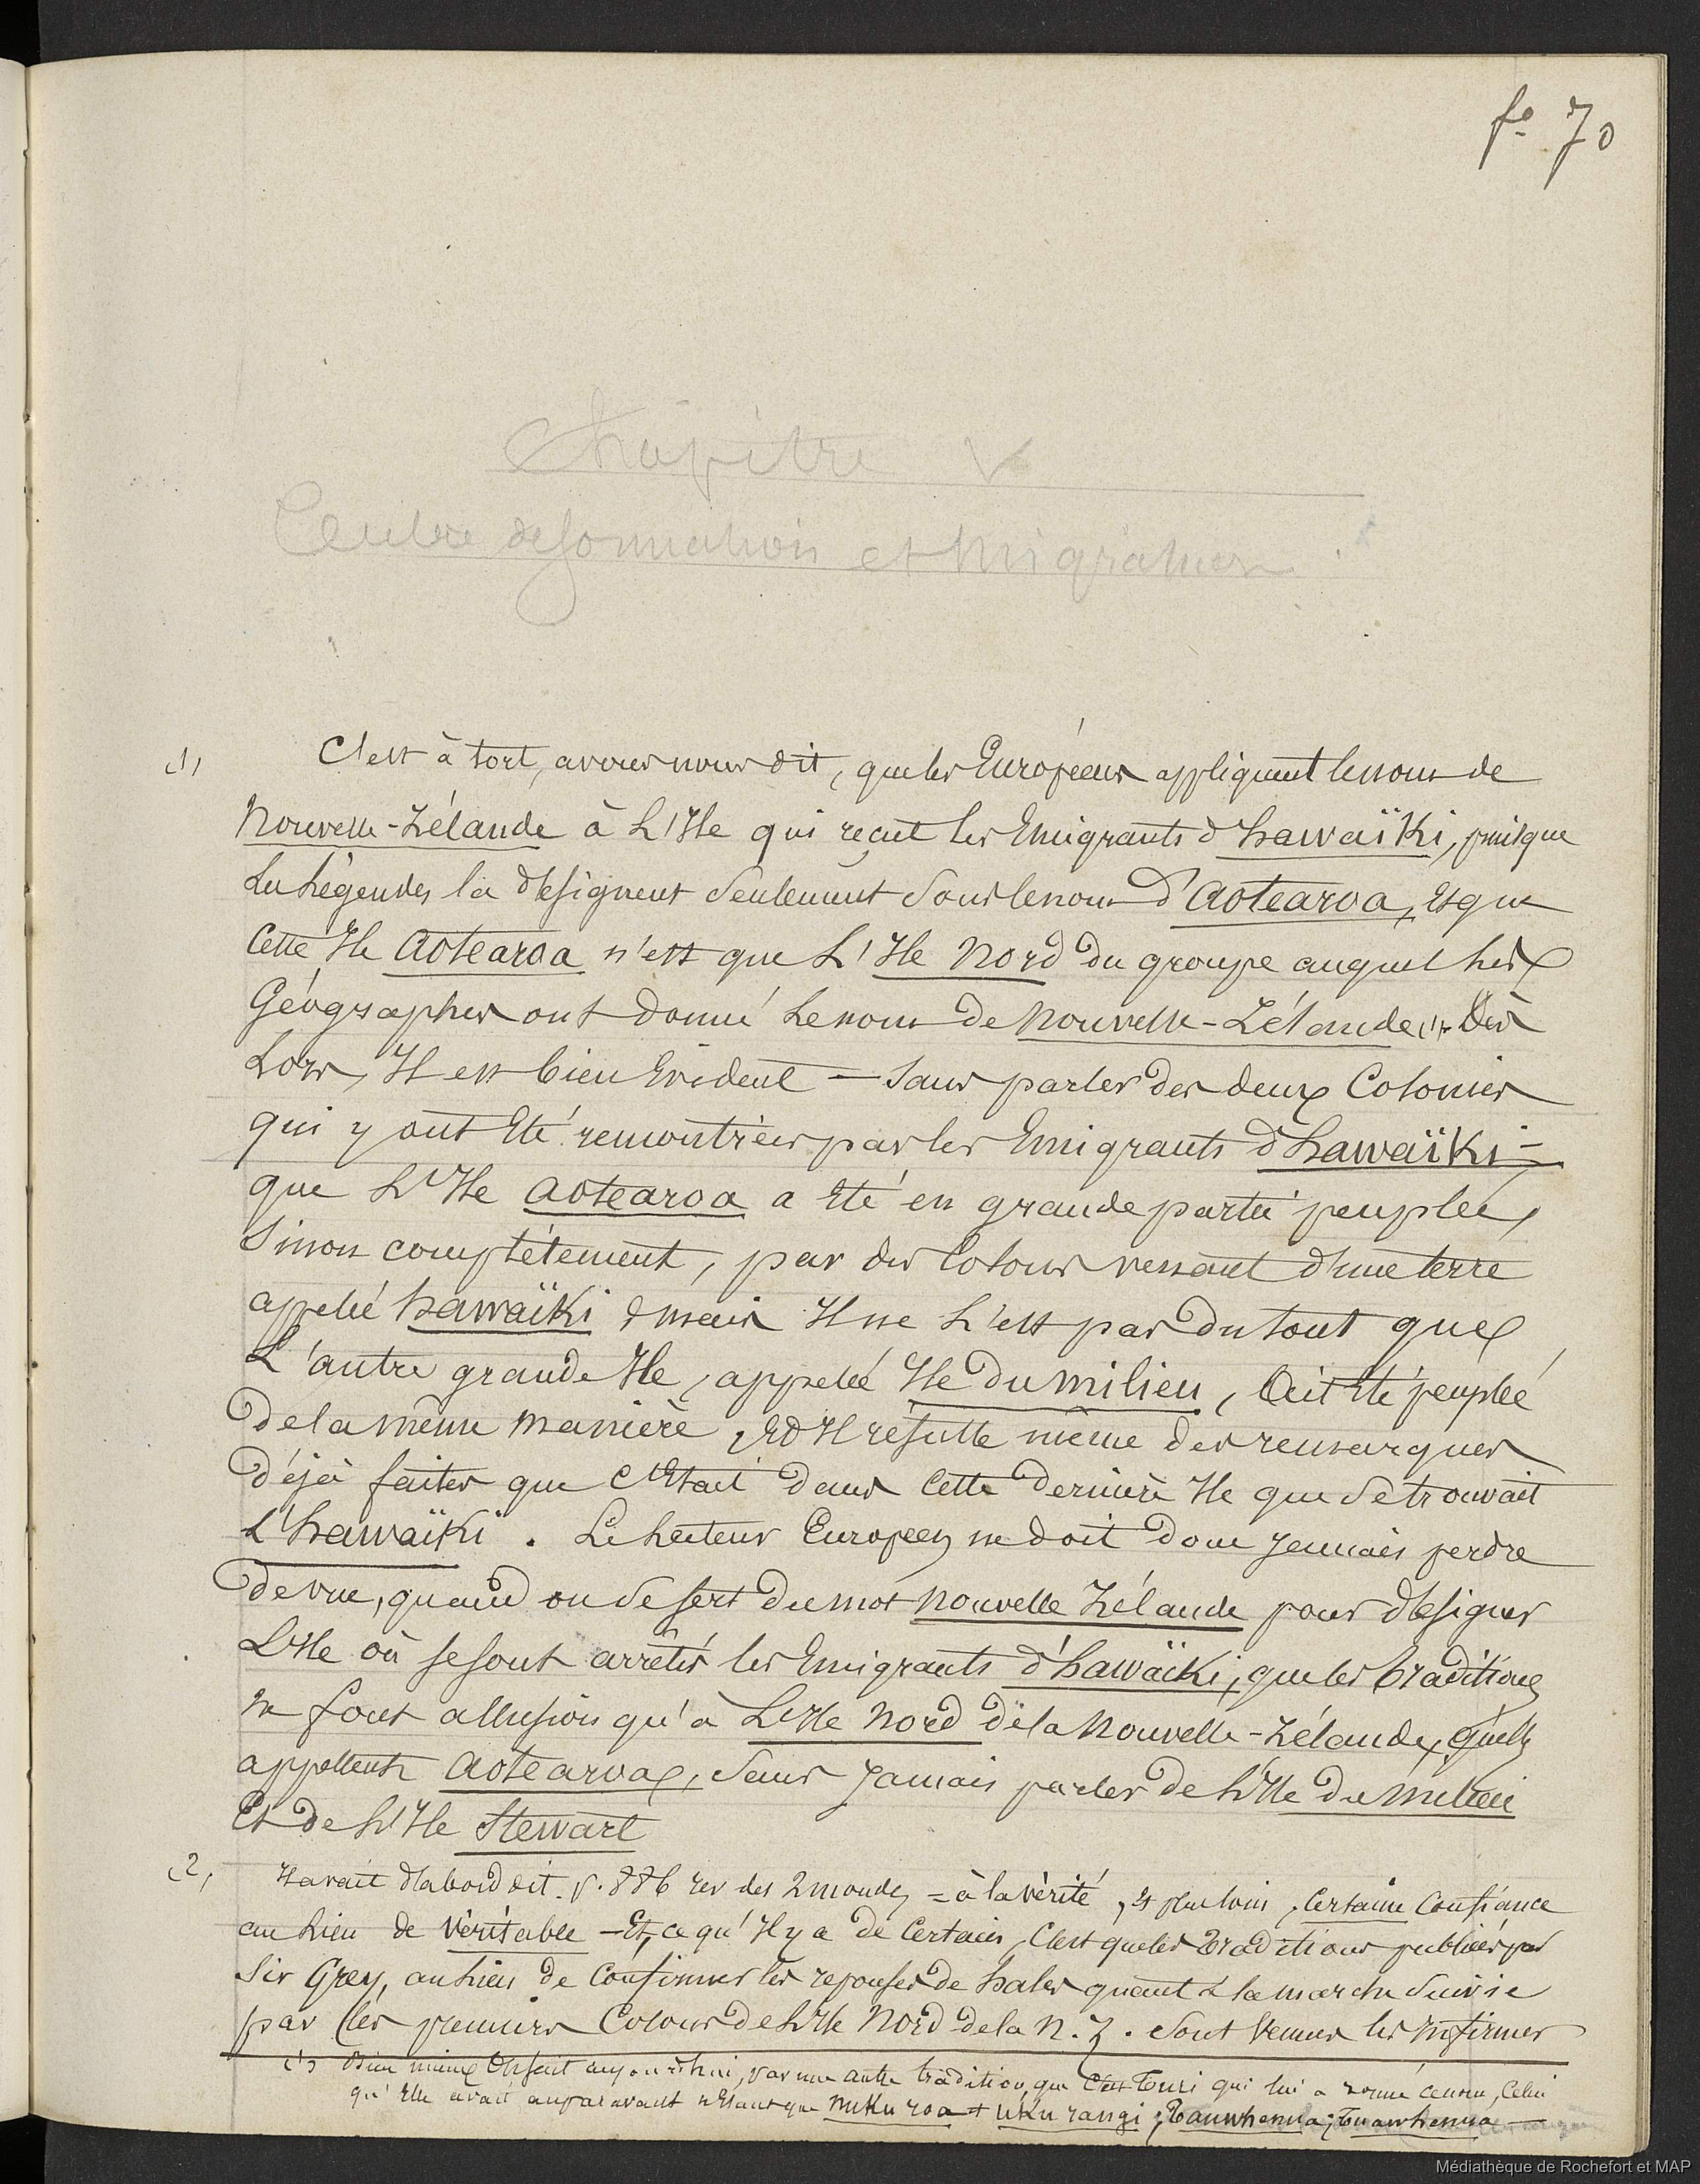 fo 70
Chapitre V
Centre de formation et Migration
(1) C'est à tort, avons nous dit, que les Européens appliquent le nom de
Nouvelle-Zélande à L'Ile qui reçut les Emigrants d'hawaïki, puisque
Les Légendes la désignent seulement sous le nom d'Aotearoa, et que
cette Ile Aotearoa n'est que L'Ile Nord du groupe auquel Les
Géographes ont donné Le nom de Nouvelle-Zélande (1). Dès
Lors, Il est bien Evident — sans parler des deux Colonies
qui y ont Eté rencontrées par les Emigrants d'hawaïki —
que L'Ile Aotearoa a Eté en grande partie peuplée,
Sinon complétement, par des Colons venant d'une terre
appelée hawaïki ; mais Il ne L'est pas du tout que
L'autre grande Ile, appelée Ile du Milieu, Ait Eté peuplée
de la même manière, Et Il résulte même des remarques
déjà faites que C'Etait dans cette dernière Ile que se trouvait
L'hawaïki. Le Lecteur Européen ne doit donc Jamais perdre
de vue, quand on se sert du mot Nouvelle Zélande pour désigner
L'Ile où se sont arrêtés les Emigrants d'hawaïki, que les traditions
ne font allusion qu'à L'Ile Nord de la Nouvelle-Zélande, qu'elles
appellent Aotearoa, sans Jamais parler de L'Ile du Milieu
Et de L'Ile Stewart
(2) Il avait d'abord dit. p. 886 rev des 2 mondes = à la vérité, et plus loin, certaine confiance
au Lieu de véritable — Et, ce qu'Il y a de Certain, C'est que les Traditions publiées par
Sir Grey, au Lieu de Confirmer les réponses de hales quant à la marche suivie
par les premiers Colons de L'Ile Nord de la N. Z. sont venues les Infirmer
(1) Bien même On sait aujourd'hui, par une autre tradition, que C'est Turi qui lui a donné ce nom, Celui
qu'Elle avait auparavant n'Etant que Nuku roa + Uku rangi ; Tauwhenua ; Tuawhenua —
Médiathèque de Rochefort et MAP